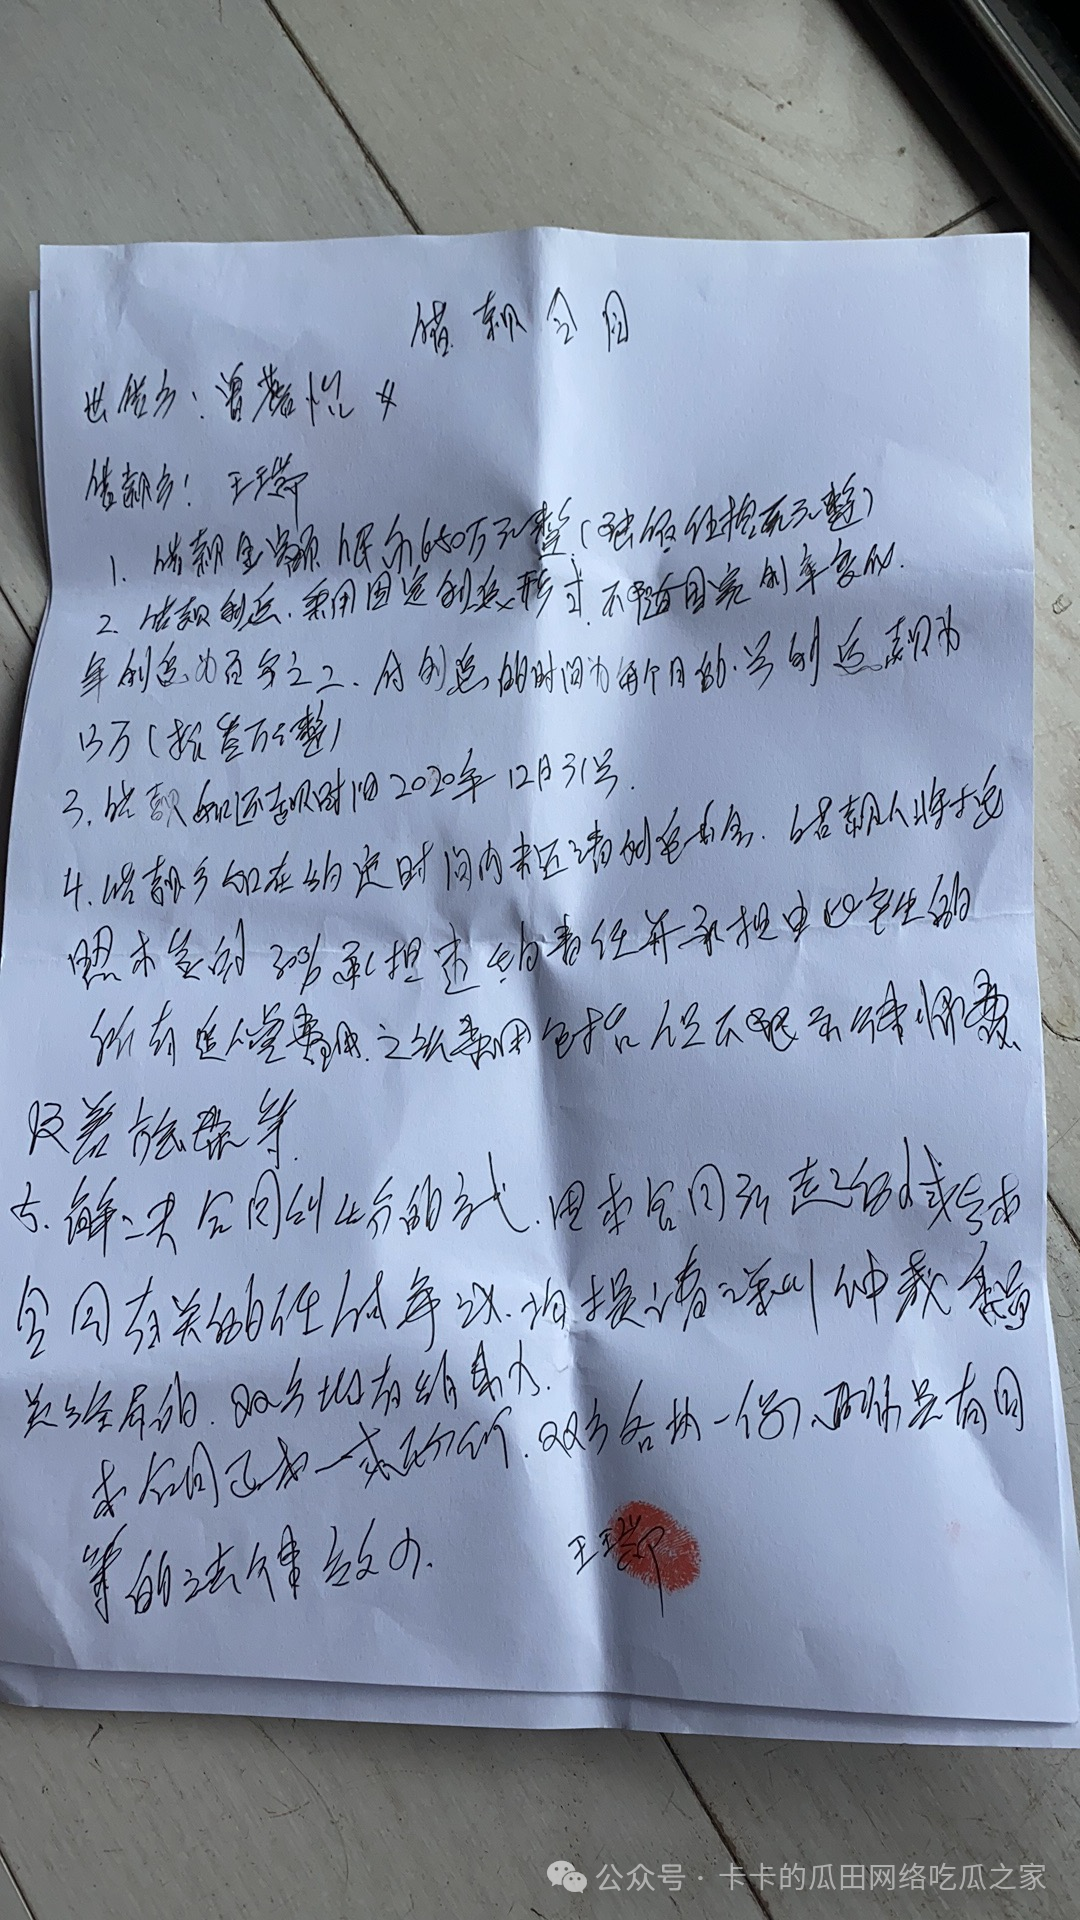 借款合同
出借方：曾
借款方：王瑞
1、借款金额 人民币650万元整（陆佰伍拾万元整）
2、借款利息、采用固定利息形式、不随国家利率变化.
年利息为百分之二、付利息的时间为每个月的 号利息款为
13万（拾叁万整）
3、借款 还款时间2020年12月31号.
4、借款方如在约定时间内未还清利息本金、借款人将按
照本金的30%承担违约责任并承担由此产生的
所有追偿费用、之类费用包括但不限于律师费
及差旅费等
5、解决合同纠纷的方式、因本合同引起的或与本
合同有关的任何争议、均提请深圳仲裁委员
双方均有约束力.
本合同 一式两份、双方各执一份、两份具有同
等的法律效力.
王瑞
公众号·卡卡的瓜田网络吃瓜之家